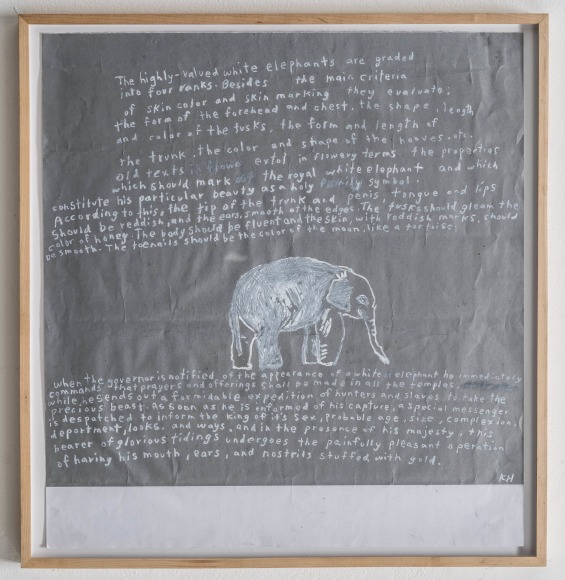 The highly-valued white elephants are graded
into four ranks. Besides the main criteria
of skin color and skin marking they evaluate;
the form of the forehead and chest, the shape, length
and color of the tusks, the form and length of
the trunk, the color and shape of the hooves. etc.
Old texts extol in flowery terms the properties
which should mark the royal white elephant and which
constitute his particular beauty as a holy symbol.
According to this, the top of the trunk and penis tongue and lips
should be reddish, and the ears, smooth at the edges. The tusks should gleam the
color of honey. The body should be fluent and the skin, with reddish marks, should
be smooth. The toenails should be the color of the moon, like a tortoise.
when the governor is notified of the appearance of a white elephant he immediately
commands that prayers and offerings shall be made in all the temples,
while he sends out a formidable expedition of hunters and slaves to take the
precious beast. As soon as he is informed of his capture, a special messenger
is despatched to inform the king of it's sex, probable age, size, complexion,
deportment, looks. and ways. and in the presence of his majesty, this
bearer of glorious tidings undergoes the painfully pleasant operation
of having his mouth, ears, and nostrils stuffed with gold.
KH